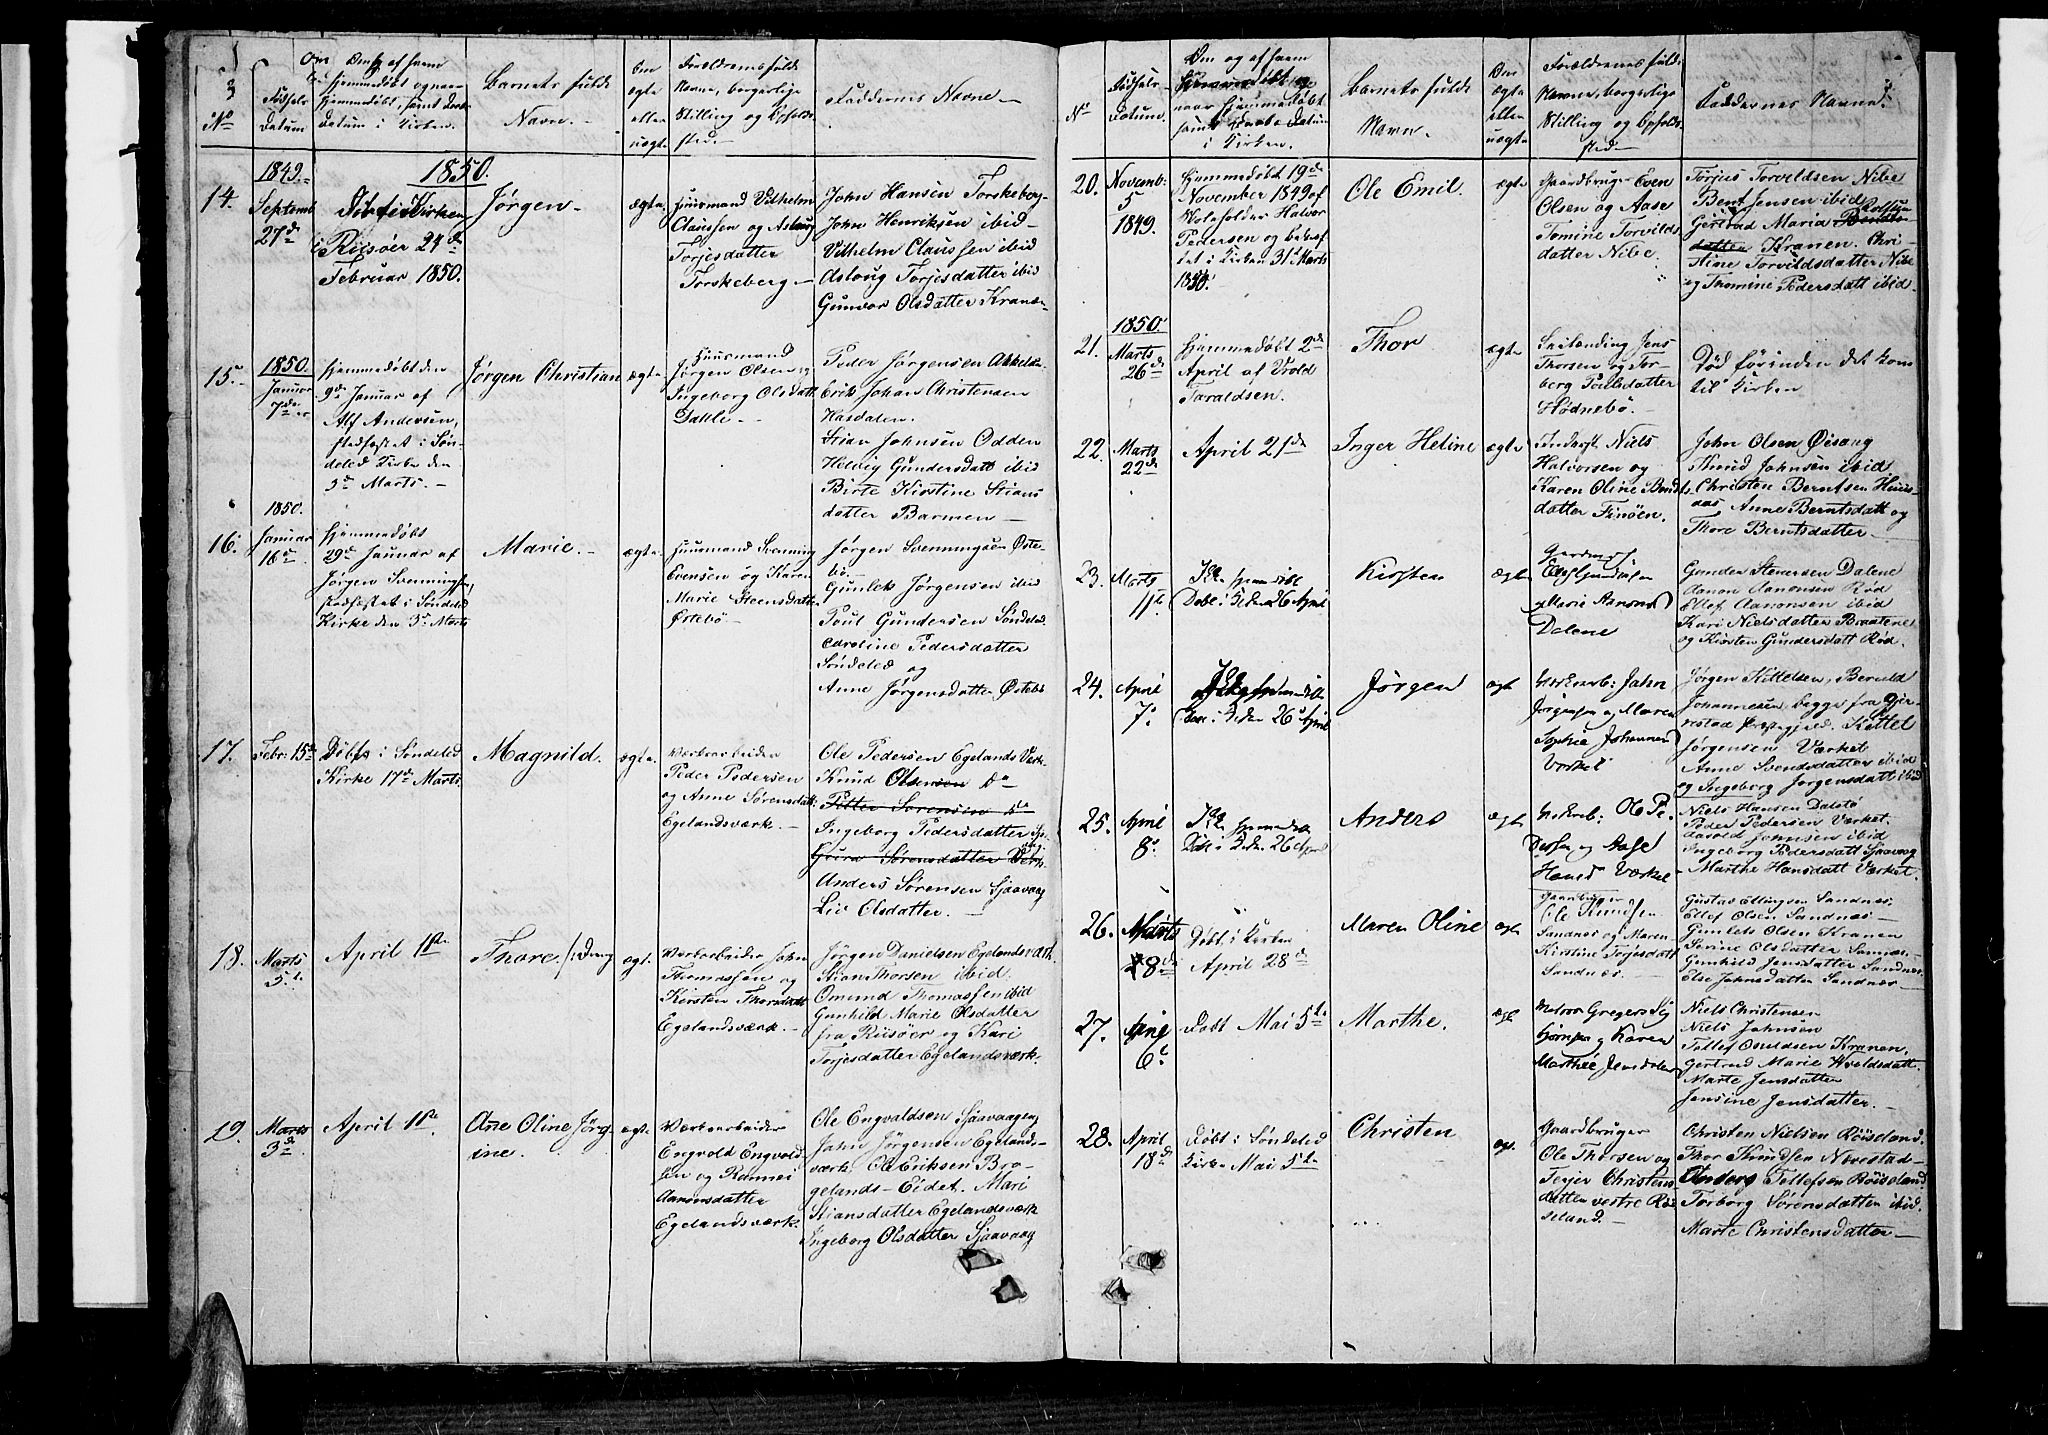 3
No
Fødsels
Datum
Datum i Kirken.
Barnets fulde
Navn.
Om
ægte
eller
uægte
Forældrenes fulde
Navne, borgerlige
Stilling og Opholds-
sted.
Faddernes Navne
1849.
1850.
14.
Septemb
27de
Døbt i Kirken
i Riisøer 24de
Februar 1850.
Jørgen
ægte
Huusmand Vilhelm
Claussen og Aslaug
Torjesdatter
Torskeberg
John Hansen Torskeberg
John Henriksen ibid
Vilhelm Claussen ibid
Aslaug Torjesdatter ibid
Gunvor Olsdatter Kranen
15.
1850.
Januar
7de
hjemmedøbt den
9de Januar af
Alf Andersen,
stadfæstet i Søn-
deled Kirke den
3de Marts.
Jørgen Christian
ægte
Huusmand
Jørgen Olsen og
Ingeborg Olsdatt
Dahle
Peder Jørgensen
Erik Johan Christensen
Hasdalen.
Stian Johnsen Odden
Helvig Gundersdatt ibid
Birte Kirstine Stians
datter Barmen
1850.
16.
Januar
16de
hjemmedøbt
29de Januar af
Jørgen Svenningsen,
stadfæstet i Søndeled
Kirke den 3de Marts
Marie.
ægte
Huusmand Svenning
Evensen og Karen
Marie Steensdatter
Østebö
Jørgen Svenningsen Øste-
bö
Gunlek Jørgensen ibid
Poul Gundersen Søndeled
Caroline Pedersdatter
Søndeled og
Anne Jørgensdatter Østebö
17.
Febr. 15de
Døbt i Søndeled
Kirke 17de Marts.
Magnild.
ægte.
Værksarbeider
Peder Pedersen
og Anne Sørensdatt.
Egelandsværk.
Ole Pedersen Egelands Værk
Knud Olsensen do
Petter Sørensen do
Ingeborg Pedersdatter
Gura Sørensdatter
Anders Sørensen Sjaavaag
Liv Olsdatter.
18.
Marts
5te
April 1ste
Thore.
ægt.
Værksarbeider John
Thomassen og
Kirsten Thorsdatt
Egelandsværk.
Jørgen Danielsen Egelandsværk.
Stian Thorsen ibid.
Omund Thomassen ibid
Gunhild Marie Olsdatter
fra Riisøer og Kari
Torjesdatter Egelandsværk.
19.
Marts
3de
April 1ste.
Ane Oline Jørg-
ine.
ægt.
Værksarbeider
Engvold Engvold-
sen og Rannei
Aanonsdatter
Egelandsværk.
Ole Engvaldsen Sjaavaagen
John Jørgensen Egelands-
værk. Ole Eriksen Bro-
gelands-Eidet. Mari
Stiansdatter Egelandsværk
Ingeborg Olsdatter Sjaavaag
No
Fødsels-
Datum.
Om og af hvem
hjemmedøbt og
naar hjemmedøbt
samt Daabs Datum
i Kirken.
Barnets fulde
Navn.
Om
ægte
eller
uægte
Forældrenes fulde
Navne, borgerlige
Stilling og Opholds-
sted
Faddernes Navne.
20.
Novemb:
5
1849.
Hjemmedøbt 19de
November 1849 af
Halvor
Pedersen og bekræf
tet i Kirken 31te Marts
1850.
Ole Emil.
ægte
Gaardbruger Even
Olsen og Aase
Tomine Torvilds
datter Nibe.
Torjus Torveldsen Nibe
Bent Jensen ibid
Gertrud Maria
datter Kranen. Chri
stine Torvildsdatter Nibe
og Thomine Pedersdatt ibid
21.
1850.
Marts
26de
hjemmedøbt 2de
April af Vrold
Taraldsen.
Thor
ægte
Jens
Thorsen og Tor-
berg Poulsdatter
Hødnebö.
Død førinden det kom
til Kirken
22.
Marts
22de
April 21de
Inger Heline
ægte
Niels
Halvorsen og
Karen Oline Bendts
datter Finöen.
John Olsen Öisang
Thorid Johnsen ibid
Christen Berntsen Huus-
aas Anne Berntsdatt og
Thore Berntsdatter
23.
Marts
11te
Ikke hjemmedöbt
Döbt i Kirken 26 April
Kirsten
ægte
og Marie Aanonsd
Dalene
Gunder Stenersen Dalene
Aanon Aanonsen Röd
Ellef Aanonsen ibid
Kari Nielsdatter Braatene
og Kirsten Gundersdatt Röd.
24.
April
7de
Döbt i Kirken 26 April
Jørgen
ægt
Værksarb: John
Jørgensen og Maren
Sophie Johannesd
Værket
Jørgen Kittelsen, Beruld
Johannesen begge fra Gjer-
restad Præstegjeld. Kettel
Jørgensen Værket
Anne Svendsdatter ibid
og Ingeborg Jørgensdatt ibid
25.
April
8de
Ikke hjemmedöbt
Döbt i Kirken 26 April
Anders
ægt
Værksarb: Ole Pe-
dersen og Aase
Hansd Værket
Niels Hansen Dalstö
Peder Pedersen Værket.
Aavold Johnsen ibid
Ingeborg Pedersdatt Sjaavaag
Marthe Hansdatt Værket.
26.
Marts
28de
Döbt i Kirken
April 28de
Maren Oline
ægt
Gaardbruger
Ole Knudsen
Sandnæs og Maren
Kirstine Torjesdatt
Sandnæs
Gustav Ellingsen Sandnæs.
Ellef Olsen Sandnæs
Gunleks Olsen Kranen
Serine Olsdatter Sannæs
Gunhild Jensdatter Sandnæs
Else Johnsdatter Sandnæs
27.
April
6te
Döbt Mai 5te
Marthe.
ægt
Matros Gregers
og Karen
Marthe Jensdatter
Niels Christensen
Niels Johnsen
Tellef Knudsen Kranen.
Gertrud Marie Wroldsdatt.
Marte Jensdatter
Jensine Jensdatter.
28.
April
18de
Döbt i Søndeled
Kirke Mai 5te
Christen
ægt.
Gaardbruger
Ole Thorsen og
Terjer Christens-
datter vestre Röi-
seland.
Christen Nielsen Röiseland.
Thor Knudsen Navestad
Anders Tellefsen Röiseland.
Torborg Sørensdatter ibid.
Marte Christensdatter